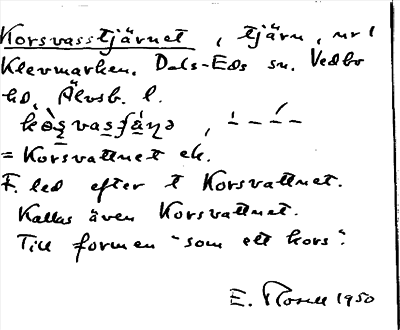 Korsvasstjärnet, tjärn, nr 1
Klevmarken. Dals-Eds sn. Vedbo
hd, Älvsb. l.
= Korsvattnet ek.
F. led efter t Korsvattnet.
Kallas även Korsvattnet.
Till formen "som ett kors".
E. Rosell 1950